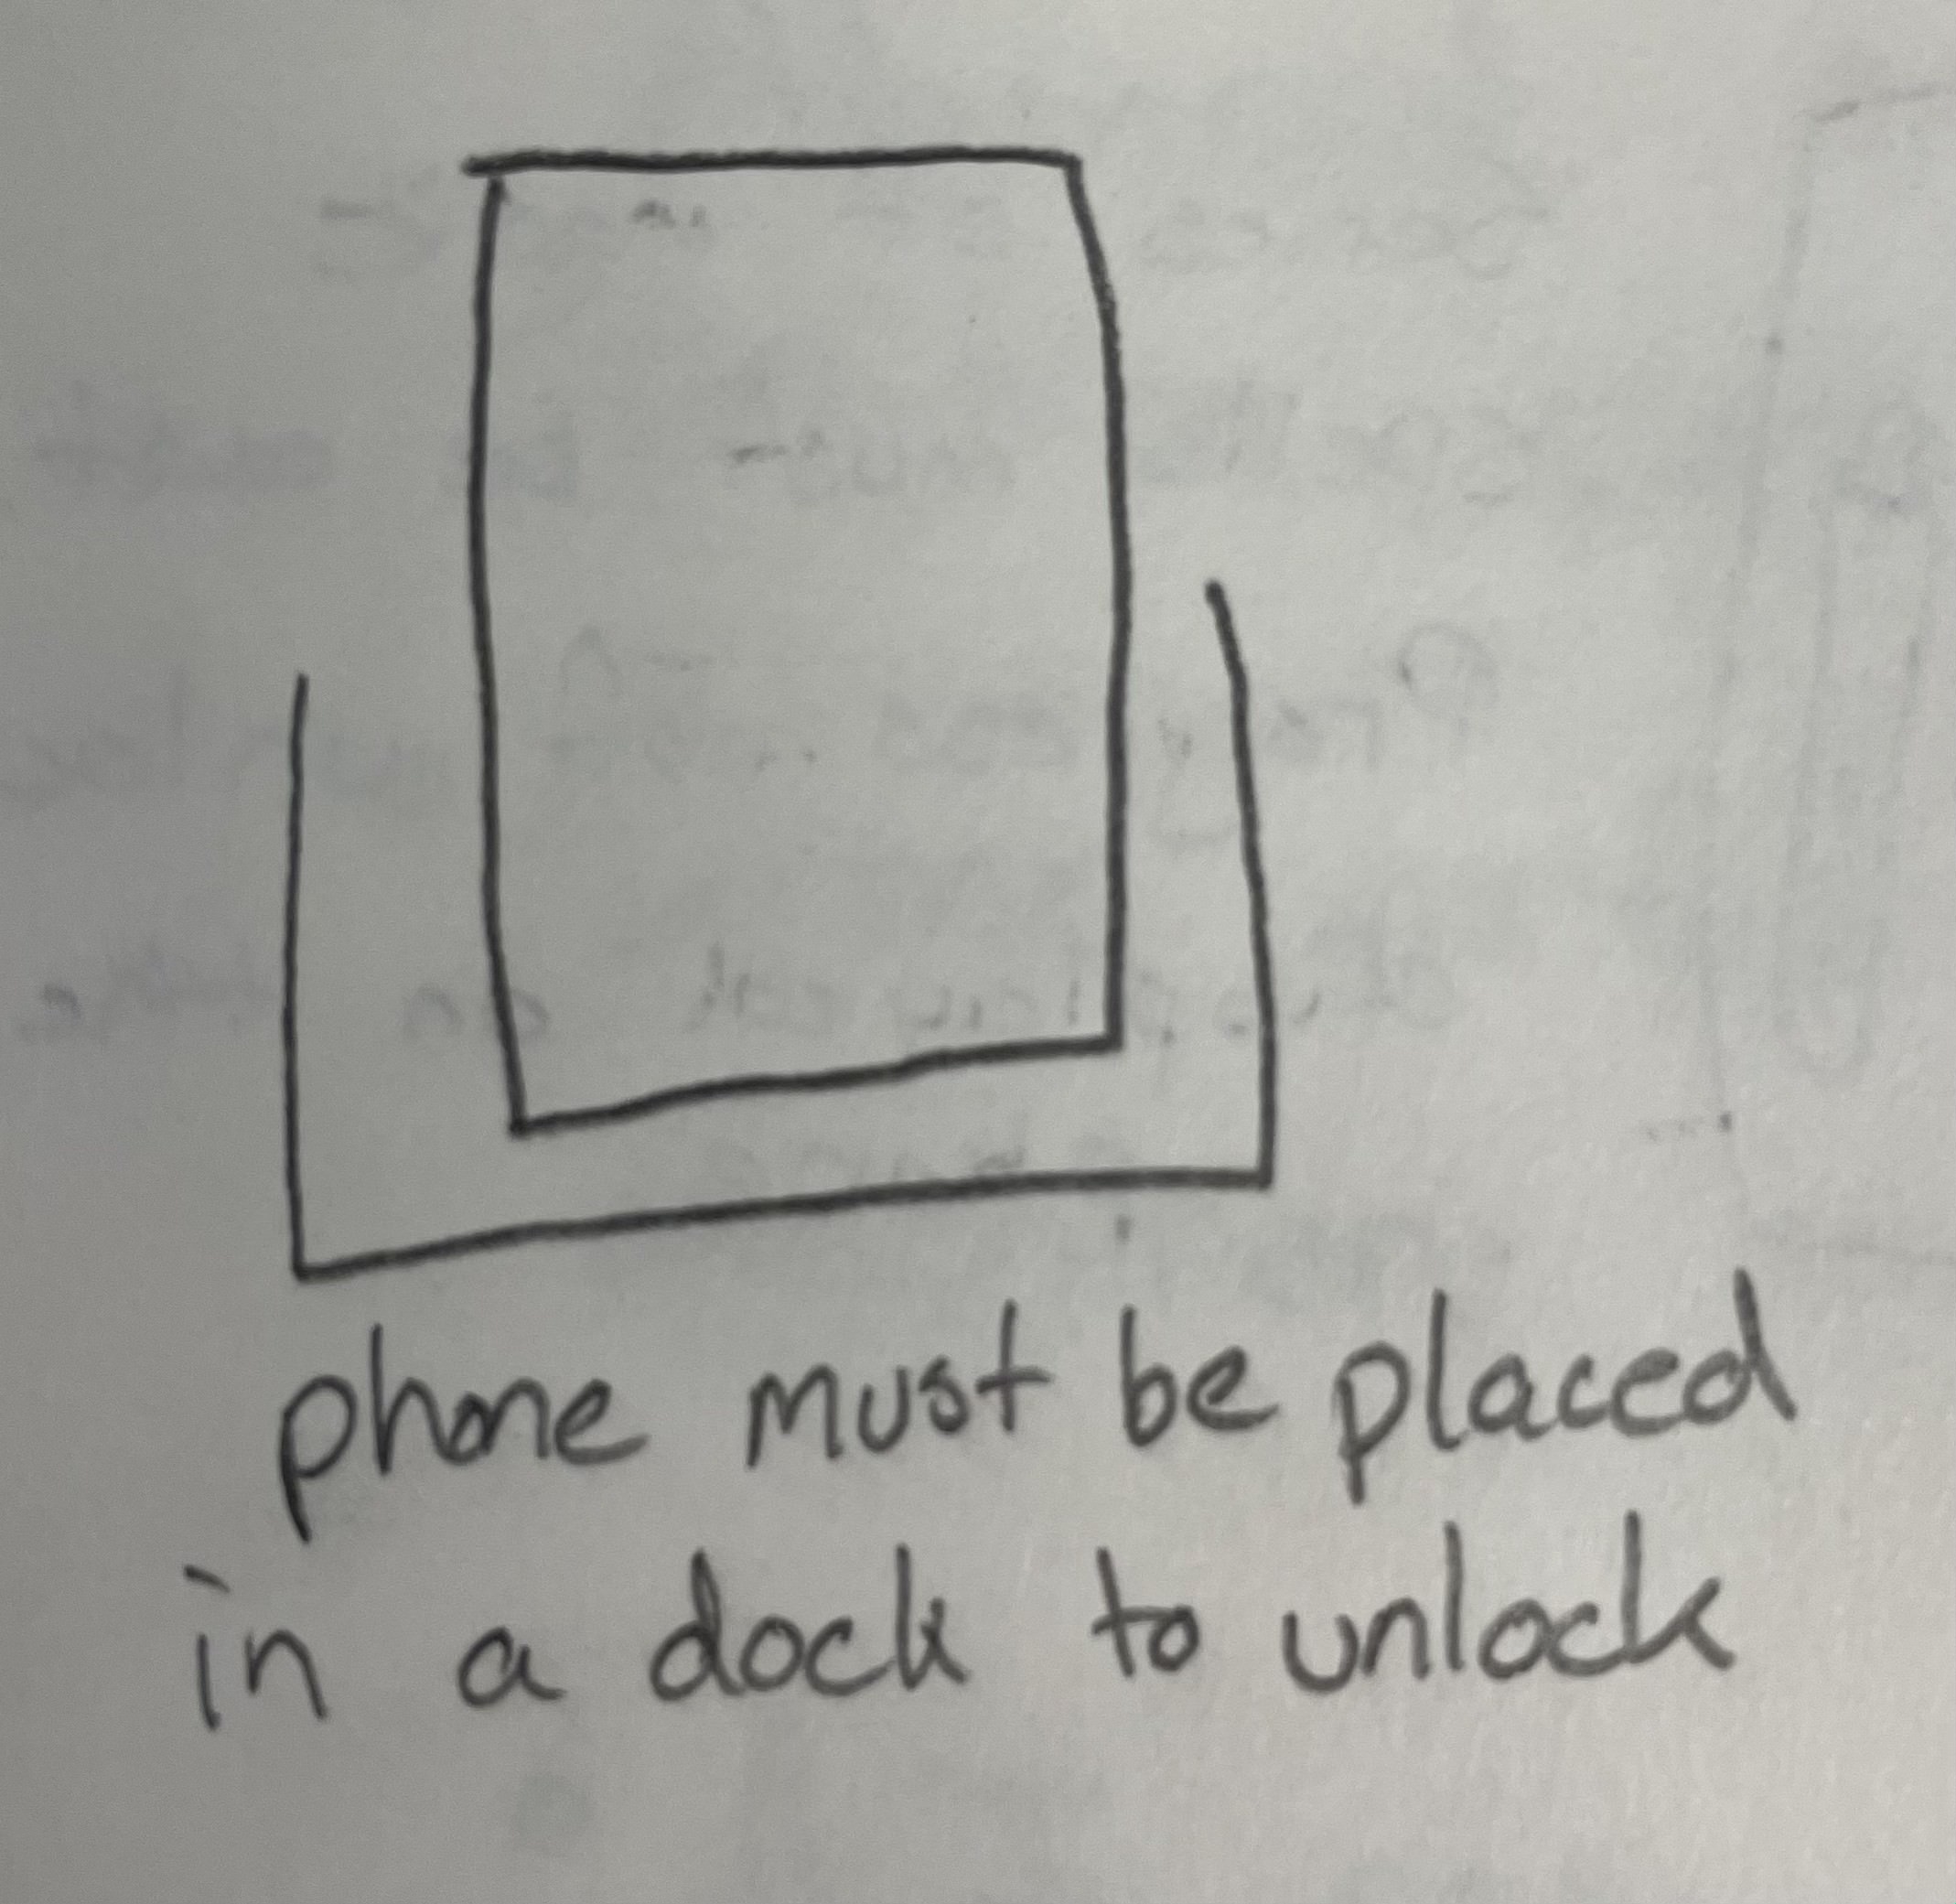 phone must be placed
in a dock to unlock